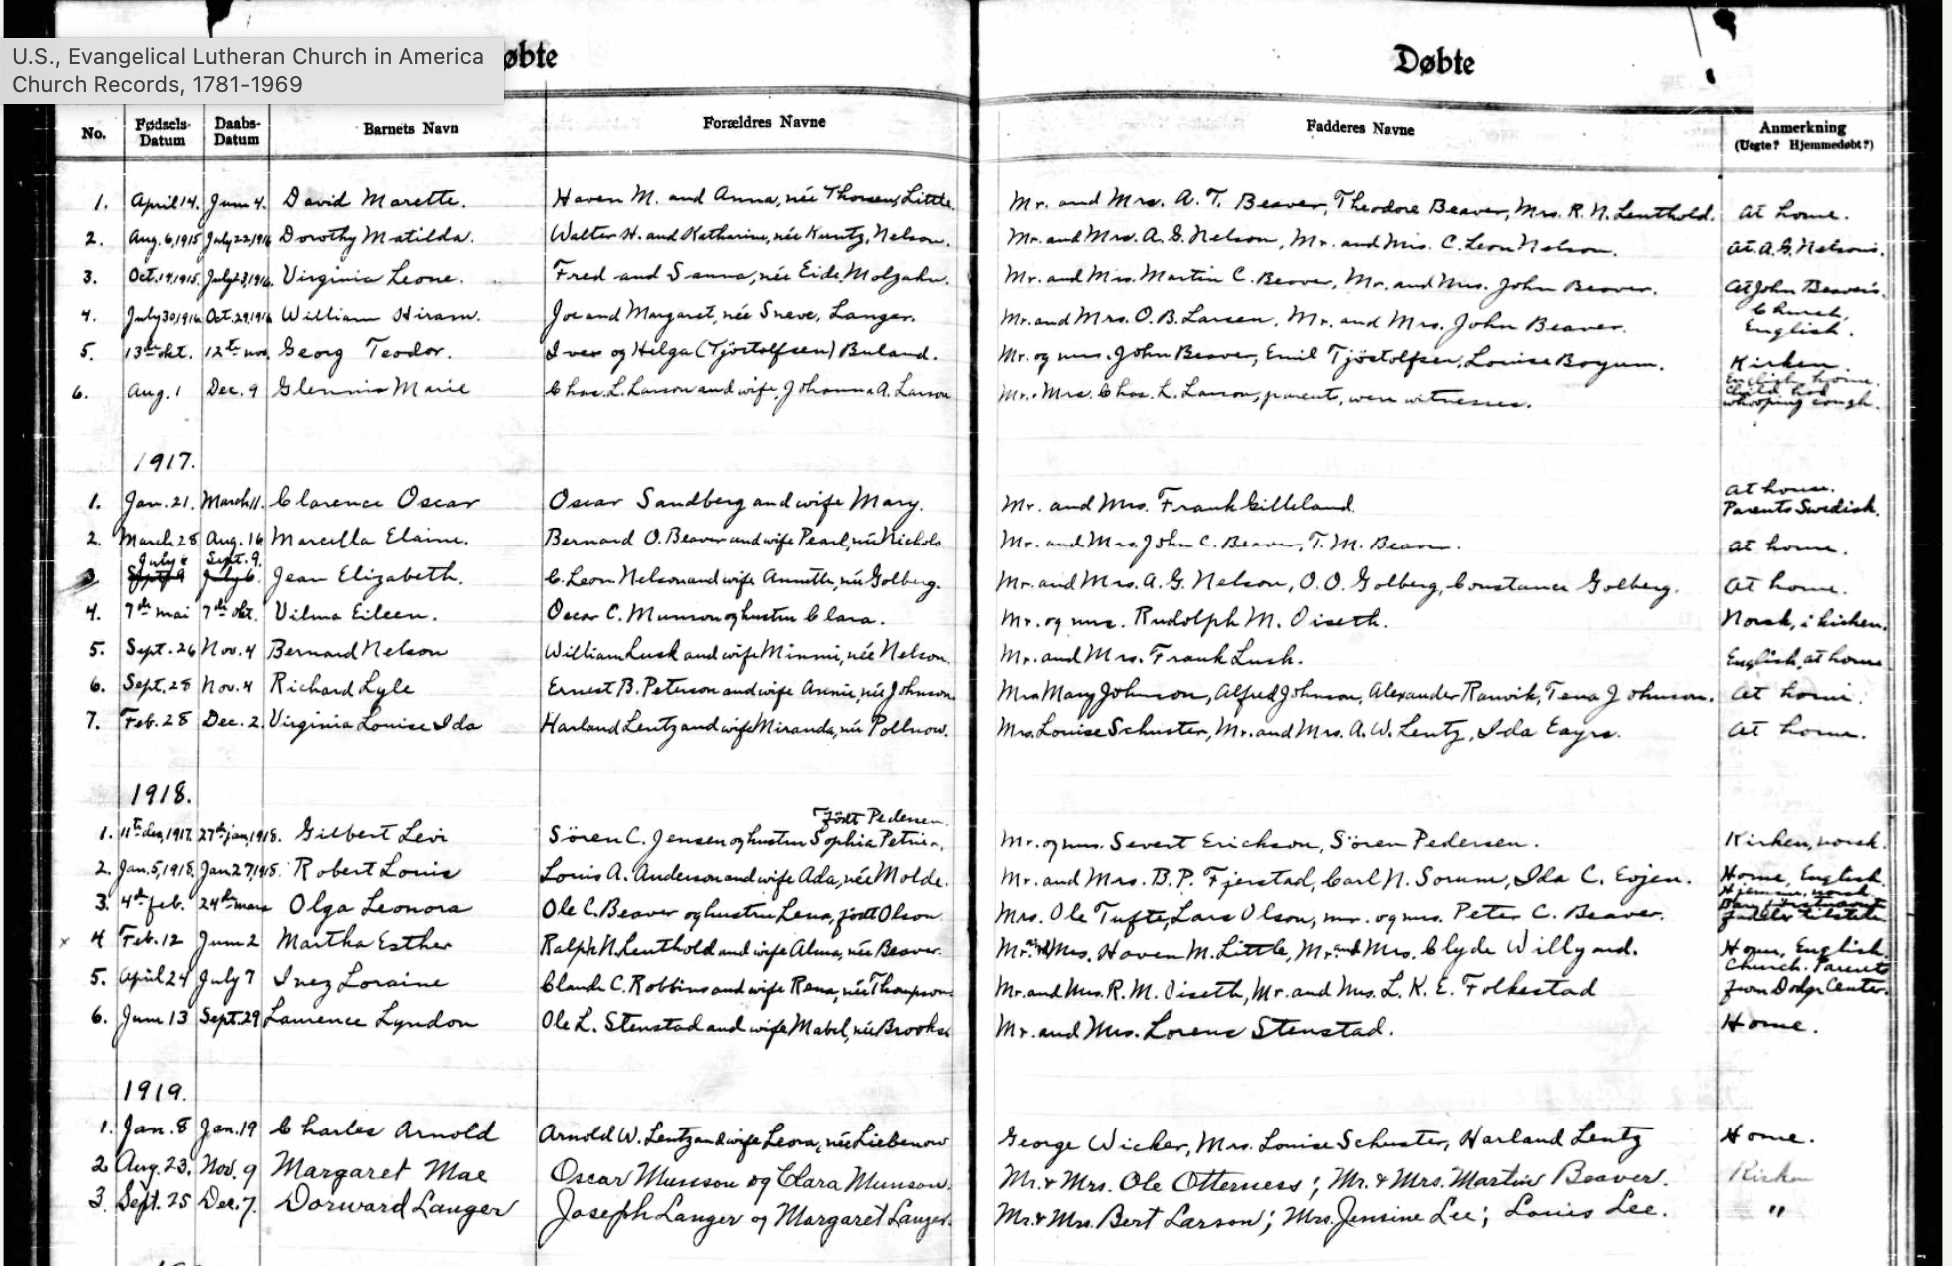 U.S., Evangelical Lutheran Church in America
Church Records, 1781-1969
øbte
Døbte
No. Fødsels-Datum Daabs-Datum Barnets Navn Forældres Navne Fadderes Navne Anmerkning (Uegte? Hjemmedøbt?)
1. April 14. June 4. David Marette. Haven M. and Anna, née Thorsen, Little. Mr. and Mrs. A. T. Beaver, Theodore Beaver, Mrs. R. N. Leuthold. At home.
2. Aug. 6, 1915 July 22, 1916 Dorothy Matilda. Walter H. and Katharine, née Kuntz, Nelson. Mr. and Mrs. A. G. Nelson, Mr. and Mrs. C. Leon Nelson. At A. G. Nelson's.
3. Oct. 19, 1915. July 23, 1916. Virginia Leone. Fred and Sanna, née Eide, Molzahn. Mr. and Mrs. Martin C. Beaver, Mr. and Mrs. John Beaver. At John Beaver's.
4. July 30, 1916 Oct. 29, 1916 William Hiram. Joe and Margaret, née Sneve, Langer. Mr. and Mrs. O. B. Larsen, Mr. and Mrs. John Beaver. Church, English.
5. 13de okt. 12te nov. Georg Teodor. Iver og Helga (Tjöstolfsen) Buland. Mr. og mrs. John Beaver, Emil Tjöstolfsen, Louise Boyum. Kirken.
6. Aug. 1 Dec. 9 Glennis Marie Chas. L. Larson and wife, Johanna A. Larson Mr. & Mrs. Chas. L. Larson, parents, were witnesses. English, home. Child had whooping cough.
1917.
1. Jan. 21. March 11. Clarence Oscar Oscar Sandberg and wife Mary. Mr. and Mrs. Frank Gilleland. At house. Parents Swedish.
2. March 28 Aug. 16 Marcella Elaine. Bernard O. Beaver and wife Pearl, née Nichols Mr. and Mrs. John C. Beaver, T. M. Beaver. At home.
July 6 Sept. 9.
3 Sept 9 July 6. Jean Elizabeth. C. Leon Nelson and wife Annette, née Golberg. Mr. and Mrs. A. G. Nelson, O. O. Golberg, Constance Golberg. At home.
4. 7de mai 7de okt. Vilma Eileen. Oscar C. Munson og hustru Clara. Mr. og mrs. Rudolph M. Oiseth. Norsk, i kirken.
5. Sept. 26 Nov. 4 Bernard Nelson William Lusk and wife Minnie, née Nelson. Mr. and Mrs. Frank Lusk. English, at home
6. Sept. 28 Nov. 4 Richard Lyle Ernest B. Peterson and wife Annie, née Johnson. Mrs Mary Johnson, Alfred Johnson, Alexander Ranvik, Tena Johnson. At home.
7. Feb. 28 Dec. 2. Virginia Louise Ida Harland Lentz and wife Miranda, née Pollnow. Mrs. Louise Schuster, Mr. and Mrs. A. W. Lentz, Ida Eayrs. At home.
1918.
født Pedersen.
1. 11te des, 1917. 27de jan, 1918. Gilbert Levi Sören C. Jensen og hustru Sophia Petrine, Mr. og mrs. Severt Erickson, Sören Pedersen. Kirken, norsk.
2. Jan. 5, 1918. Jan. 27, 1918. Robert Louis Louis A. Anderson and wife Ada, née Molde. Mr. and Mrs. B. P. Fjerstad, Carl N. Sorum, Ida C. Evjen. Home, English.
3. 4de feb. 24de mars Olga Leonora Ole C. Beaver og hustru Lena, født Olson Mrs. Ole Tufte, Lars Olson, mr. og mrs. Peter C. Beaver. Hjemme, norsk.
4 Feb. 12 June 2 Martha Esther Ralph N. Leuthold and wife Alma, née Beaver. Mr. and Mrs. Haven M. Little, Mr. and Mrs. Clyde Willyard. Home, English.
5. April 24 July 7 Inez Loraine Claude C. Robbins and wife Rena, née Thompson. Mr. and Mrs. R. M. Oiseth, Mr. and Mrs. L. K. E. Folkestad Church. Parents from Dodge Center.
6. June 13 Sept. 29 Laurence Lyndon Ole L. Stenstad and wife Mabel, née Brooks. Mr. and Mrs. Lorens Stenstad. Home.
1919.
1. Jan. 8 Jan. 19 Charles Arnold Arnold W. Lentz and wife Leora, née Liebenow George Wicker, Mrs. Louise Schuster, Harland Lentz Home.
2 Aug. 23. Nov. 9 Margaret Mae Oscar Munson og Clara Munson. Mr. & Mrs. Ole Otterness; Mr. & Mrs. Martin Beaver. Kirken
3. Sept. 25 Dec. 7. Dorward Langer Joseph Langer og Margaret Langer. Mr. & Mrs. Bert Larson; Mrs. Jensine Lee; Louis Lee. "